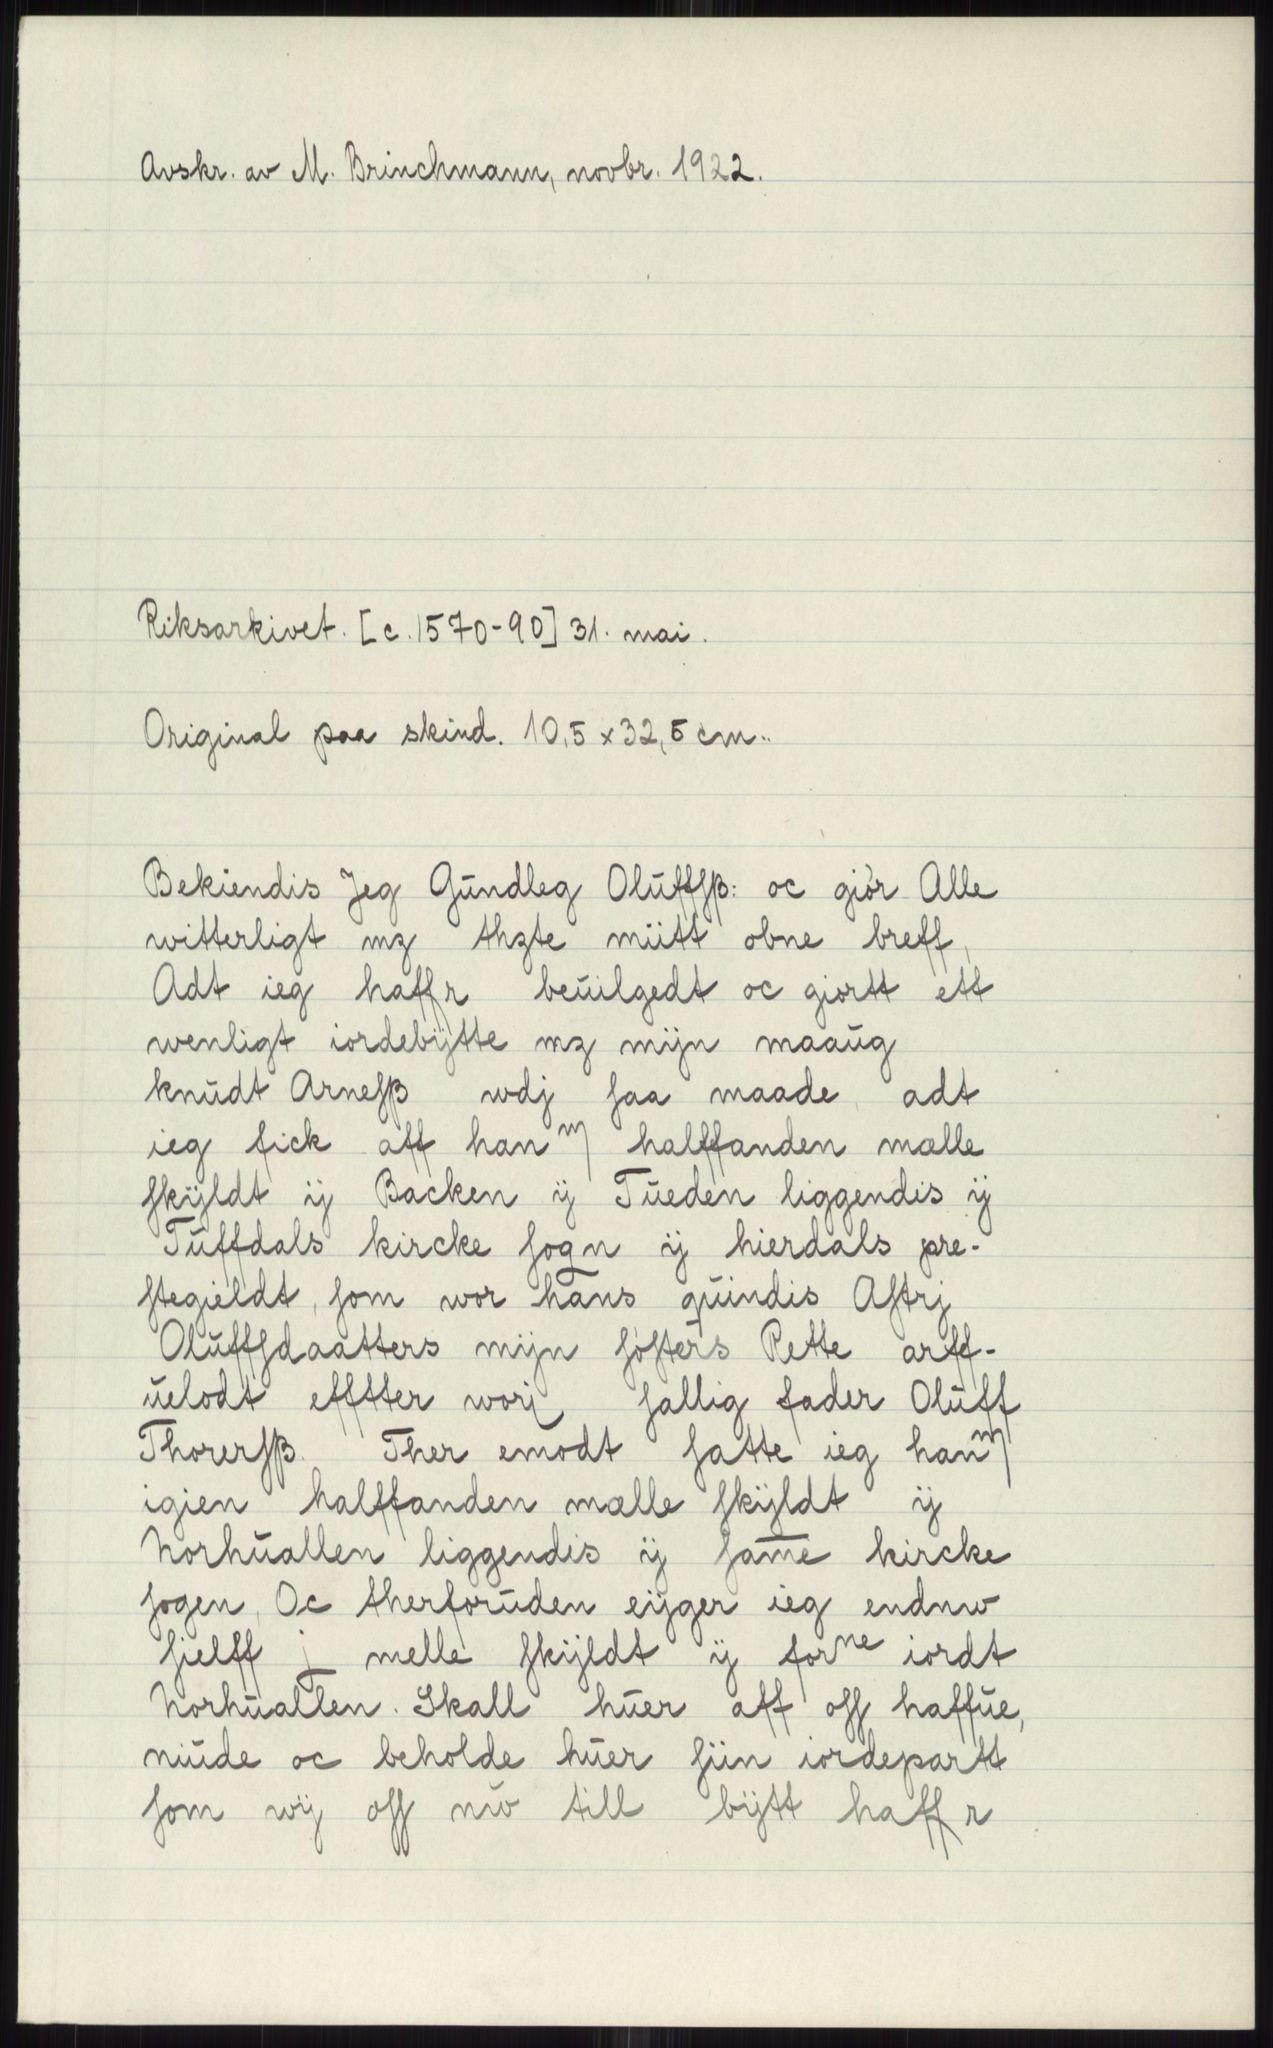 Avskr. av M. Brinchmann, novbr. 1922.
Riksarkivet. [c. 1570-90] 31. mai.
Original paa skind. 10,5 x 32,5 cm..
Bekiendis Jeg Gŭndleg Olŭffsß: oc giør Alle
witterligt mz thzte miitt obne breff,
Adt ieg haffr beŭilgedt oc giortt ett
wenligt iordebÿtte mz mijn maaŭg
knŭdt Arnesß wdj saa maade, adt
ieg fick aff hanm halffanden mælle
skÿldt ÿ Backen ÿ Tŭeden liggendis ÿ
Tŭffdals kircke sogn ÿ hierdals pre-
stegieldt, som wor hans qŭindis Astrj
Olŭffsdaatters mijn søsters Rette arff-
ŭelodt efftter worj sallig fader Olŭff
Thorersß. Ther emodt satte ieg hanm
igien halffanden mælle skÿldt ÿ
Norhŭallen liggendis ÿ sam̄e kircke
sogen, Oc therforŭden eÿger ieg endnw
sielff j melle skÿldt ÿ forne iordt
Norhŭallen. Skall hŭer aff oss haffŭe,
niŭde oc beholde hŭer siin iordepartt
som wÿ oss nŭ till bÿtt haffr